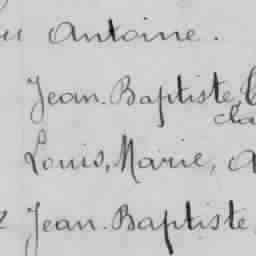 Antoine.
Jean. Baptiste,
Louis, Marie,
Jean. Baptiste